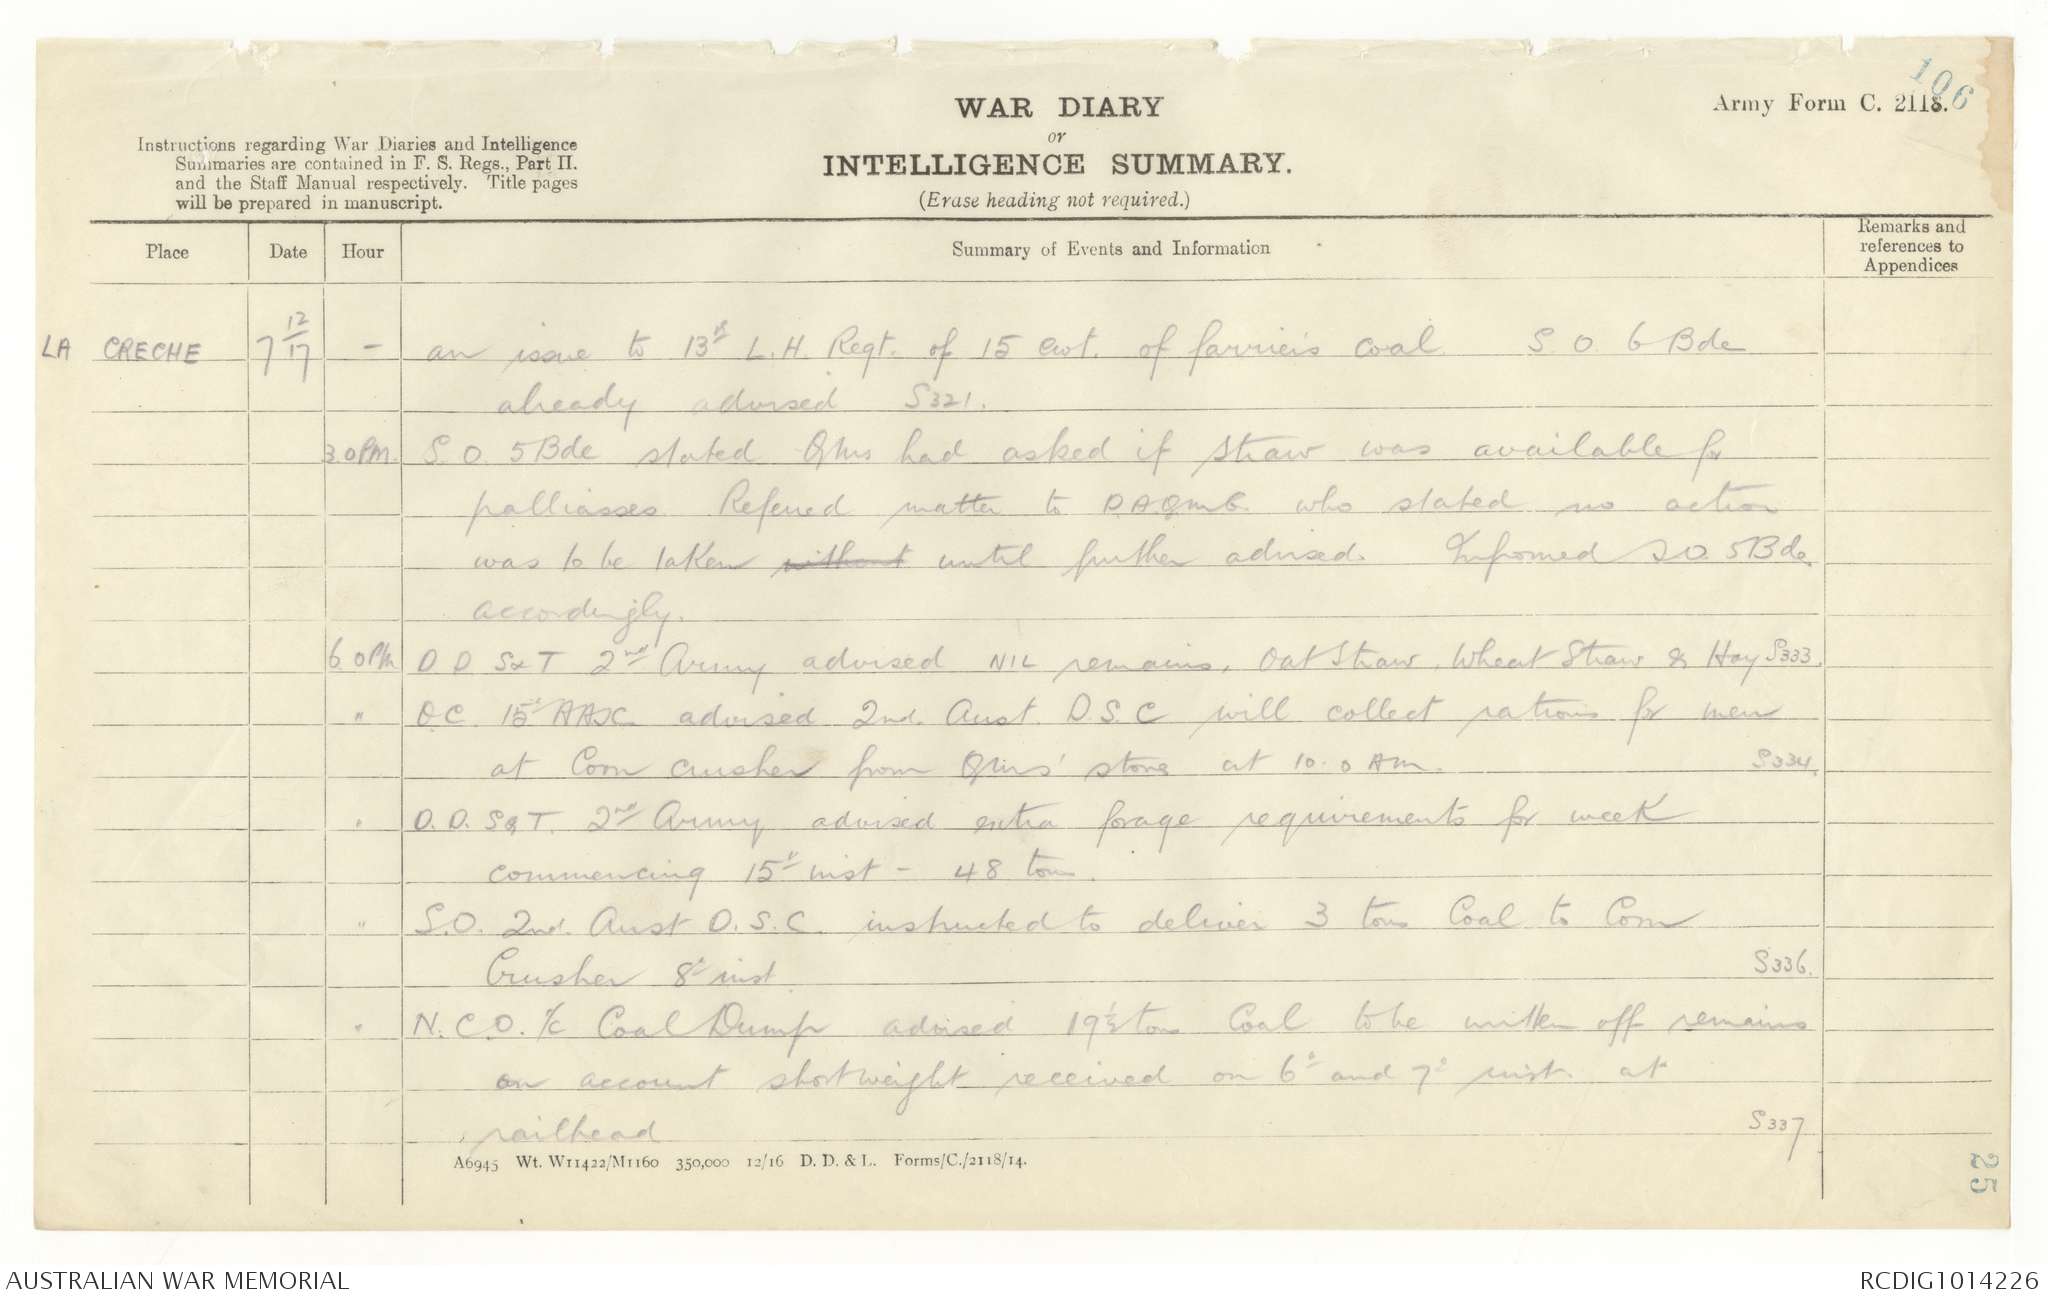 106
Army Form C. 2118.
WAR DIARY
or
INTELLIGENCE SUMMARY.
(Erase heading not required.)
Instructions regarding War Diaries and Intelligence
Summaries are contained in F. S. Regs., Part II.
and the Staff Manual respectively. Title pages
will be prepared in manuscript.
Place Date Hour Summary of Events and Information Remarks and references to Appendices
LA CRECHE 7 12/17 - an issue to 13th L.H. Regt. of 15 cwt. of farriers coal. S. O. 6 Bde
already advised S321.
3.0PM. S. O. 5Bde stated Qms had asked if straw was available for
palliasses. Referred matter to DAQMG. who stated no action
was to be taken without until further advised. Informed SO 5Bde
accordingly.
6.0PM D. D. S&T 2nd Army advised NIL remains, Oat Straw, Wheat Straw & Hay S333.
" OC. 15th AASC advised 2nd. Aust. D.S.C will collect rations for men
at Corn crusher from Qms' store at 10.0 AM. S334.
" D. D. S&T. 2nd Army advised extra forage requirements for week
commencing 15th inst - 48 tons.
" S.O. 2nd. Aust D.S.C. instructed to deliver 3 tons Coal to Corn
Crusher 8th inst S336.
" N.C.O. i/c Coal Dump advised 19½ tons Coal to be written off remains
on account shortweight received on 6th and 7th inst. at
railhead S337
A6945 Wt. W11422/M1160 350,000 12/16 D. D. & L. Forms/C./2118/14.
25
AUSTRALIAN WAR MEMORIAL
RCDIG1014226